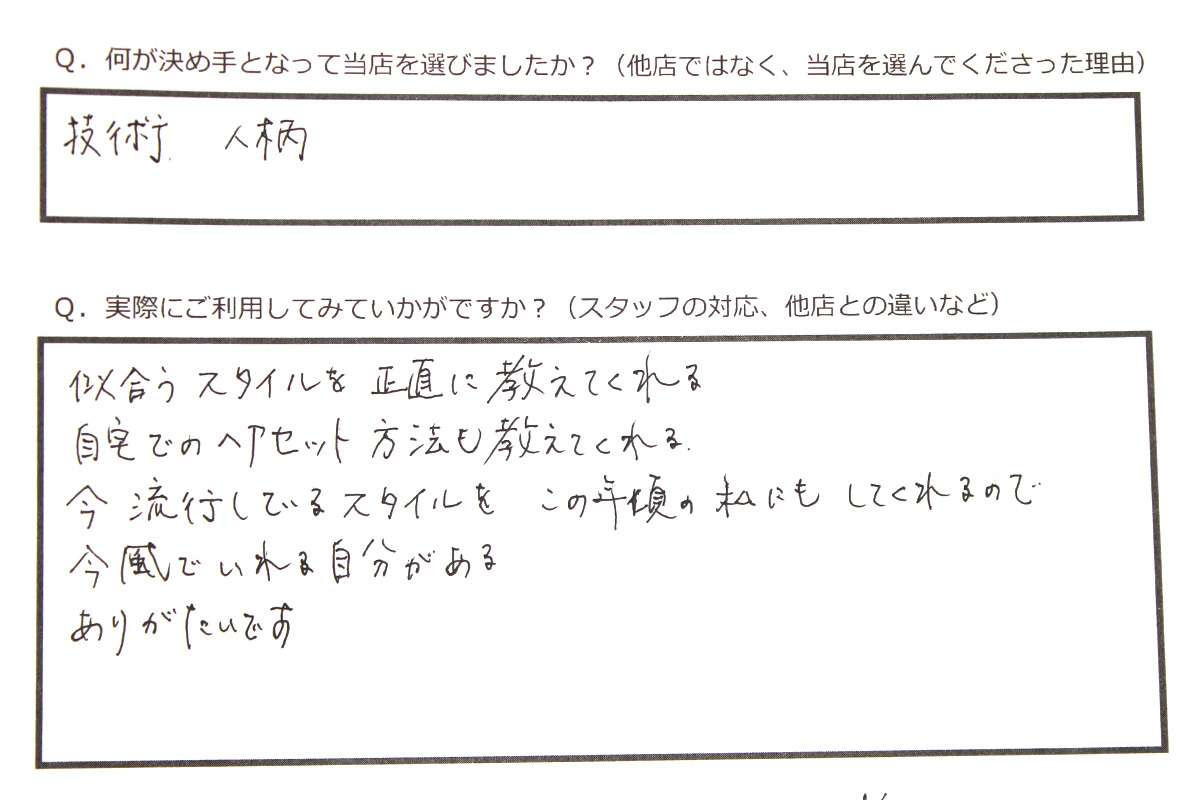 Q. 何が決め手となって当店を選びましたか？（他店ではなく、当店を選んでくださった理由）
技術 人柄
Q. 実際にご利用してみていかがですか？（スタッフの対応、他店との違いなど）
似合うスタイルを 正直に教えてくれる
自宅でのヘアセット方法も教えてくれる.
今流行しているスタイルを この年頃の私にもしてくれるので
今風でいれる自分がある
ありがたいです